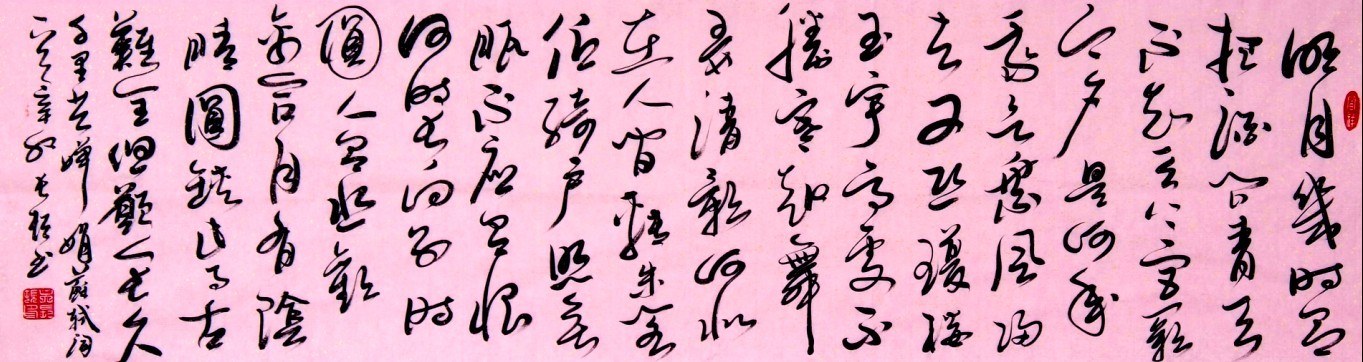 明月幾时有
把酒问青天
不知天上宫闕
今夕是何年
我欲乘风归
去又恐瓊楼
玉宇高處不
勝寒起舞
弄清影何似
在人间轉朱阁
低绮户照无
眠不应有恨
何时长向别时
圓人有悲歡
離合月有陰
晴圓缺此事古
難全但願人长久
千里共嬋娟蘇轼词
辛卯 书